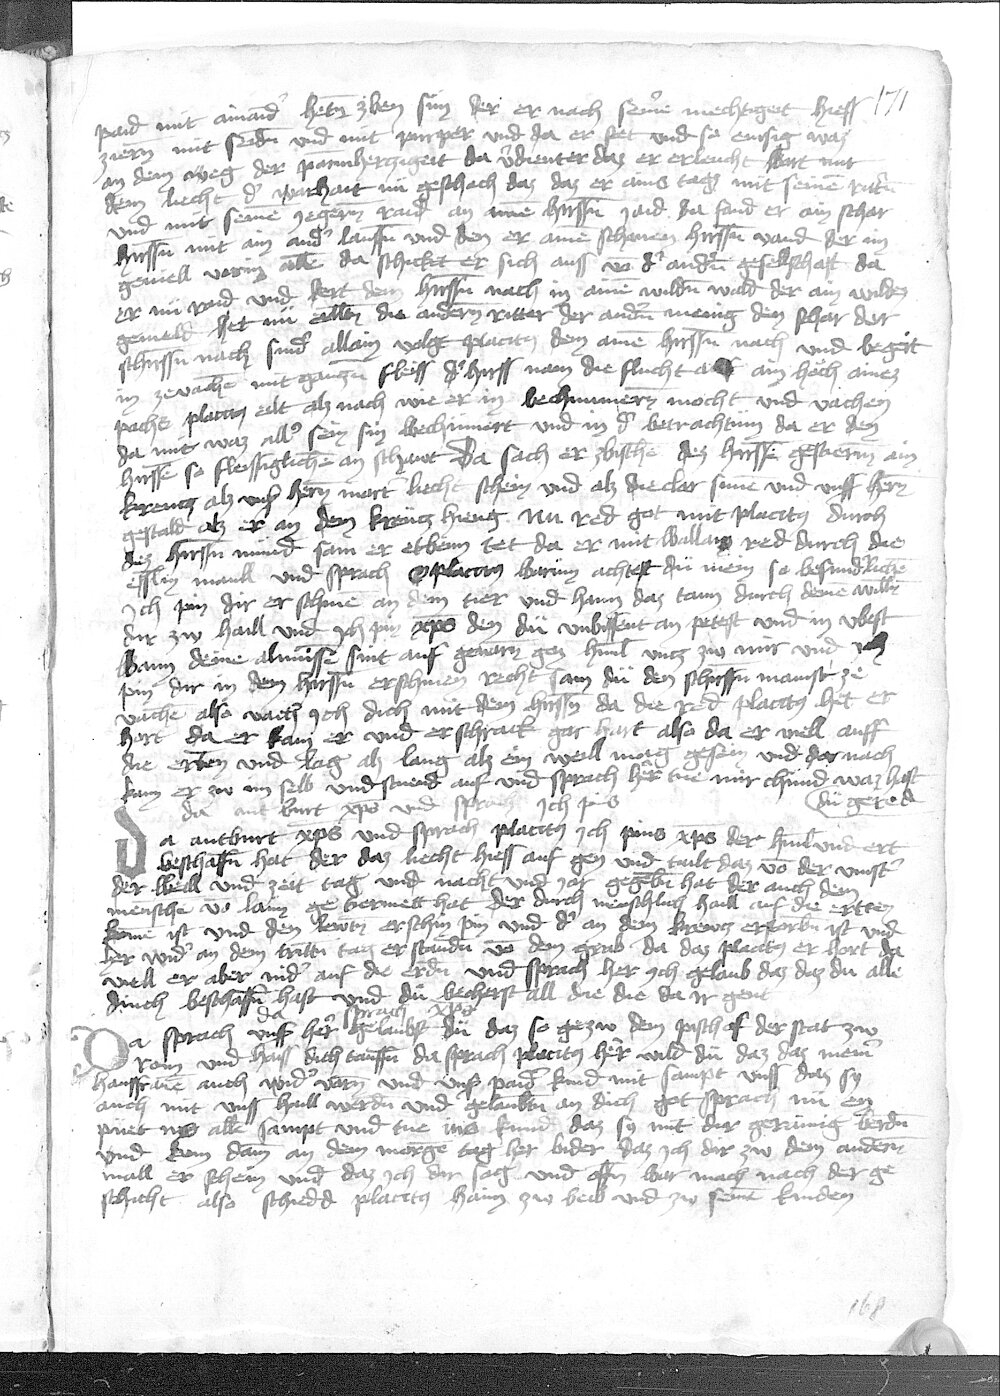 171
paid mit ainand' hetn zben sun der er nach seine mechtigeit hiess
ziern mit seidn und mit purper und da er stet und so emsig waz
an dem weg der parmherzigeit da v'dienter daz er erleucht wart mit
dem liecht d' warhait nu geschach daz daz er ains tagß mit seinē rittn
und mit seinē jegern raid an ainē hirssn jaid da fand er ain schar
hirssn mit ain and' lauffn und den er ainē schonen hirssn vand der im
geviell vorin allē da schicket er sich auss vō d' andn geselschaft da
er nu raid und kert dem hirssn nach in ainē wildn wald der ain wildez
geweld het nu eilltn die andern ritter der andn menig den schar der
hirssn nach sind' allain volgt placitus dem ainē hirssn nach und begert
in zevachē mit ganczn fleiss d' hirss nam die flucht auf ain hoch ainez
pachs placitus eilt alz nach wie er in bechumern mocht und vachen
da mit waz all' sein sin bechumert und in d' betrachtung da er den
hirssē so fleissiglichē an schawt Da sach er zbischē dez hirssē gestiern ain
kreucz alz unß hern mart' liecht schein und alz die clar sunne und unß hern
gestald alz er an dem kreucz hieng Nu red got mit placitus durch
dez hirssn mund sam er etbenn tet da er mit wallam red durch die
esslin maull und sprach O placitus warum achtest du mein so besund'lichē
Ich pin dir er schinē an dem tier und hann daz tann durch deinē willn
dir zw haill und Ich pin xps den du unbissent an petest und in ubest
Wann deine almussē sint auf gevarn gen himl uncz zw mir und ich
pin dir in dem hirssn erschinen recht sam du den hirssn mainst ze
vachē also vach Ich dich mit dem hirssn da die red placitus het er
hort da er kam er und erschrack gar hart also da er viell auff
die erden und lag alz lang alz ein weil mag gesein und dar nach
kam er zw im selb und stuend auf und sprach her tue mir chund waz hast
du gered
da ant burt xps und sprach Ich pins
Da antburt xps und sprach placitus Ich pins xps der himl und ert
beschaffn hat der daz liecht hiess auf gen und tailt daz vō der vinst'
der weil und zeit tag und nacht und jar gegebn hat der auch dem
menschē vō laim ge formett hat der durch menschlich haill auf die ertten
komē ist und den lewtn erschin pin und d' an dem krewcz erstorbn ist und
her wid' an dem trittn tag erstandn vō dem grab da daz placitus er hort da
viell er aber nid' auf die erdn und sprach her ich gelaub daz daz du alle
dinch beschaffn hast und du becherst all die die da ir gent
da sprach xps
Da sprach unß her gelaubst du daz so gezw dem pischof der stat zw
rom und haiss dich tauffn da sprach placitus her wild du daz daz mein'
haussfrawē auch wid' varn und unß paid' kind mit sampt unss daz sy
auch mit unss haill werdn und gelaubtn an dich got sprach nu en
piuet alle sampt und tue kund daz sy mit dir gerainig berdn
und kum dann an dem morgē tag her wider daz ich dir zw dem andern
mall er schein und daz Ich dir sag' und offn bar mach nach der ge
schicht also schiedd placitus haim zw veib und zw seinē kinden
168